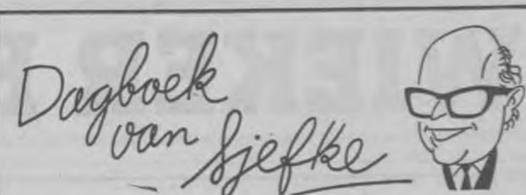 Dagboek
van Sjefke